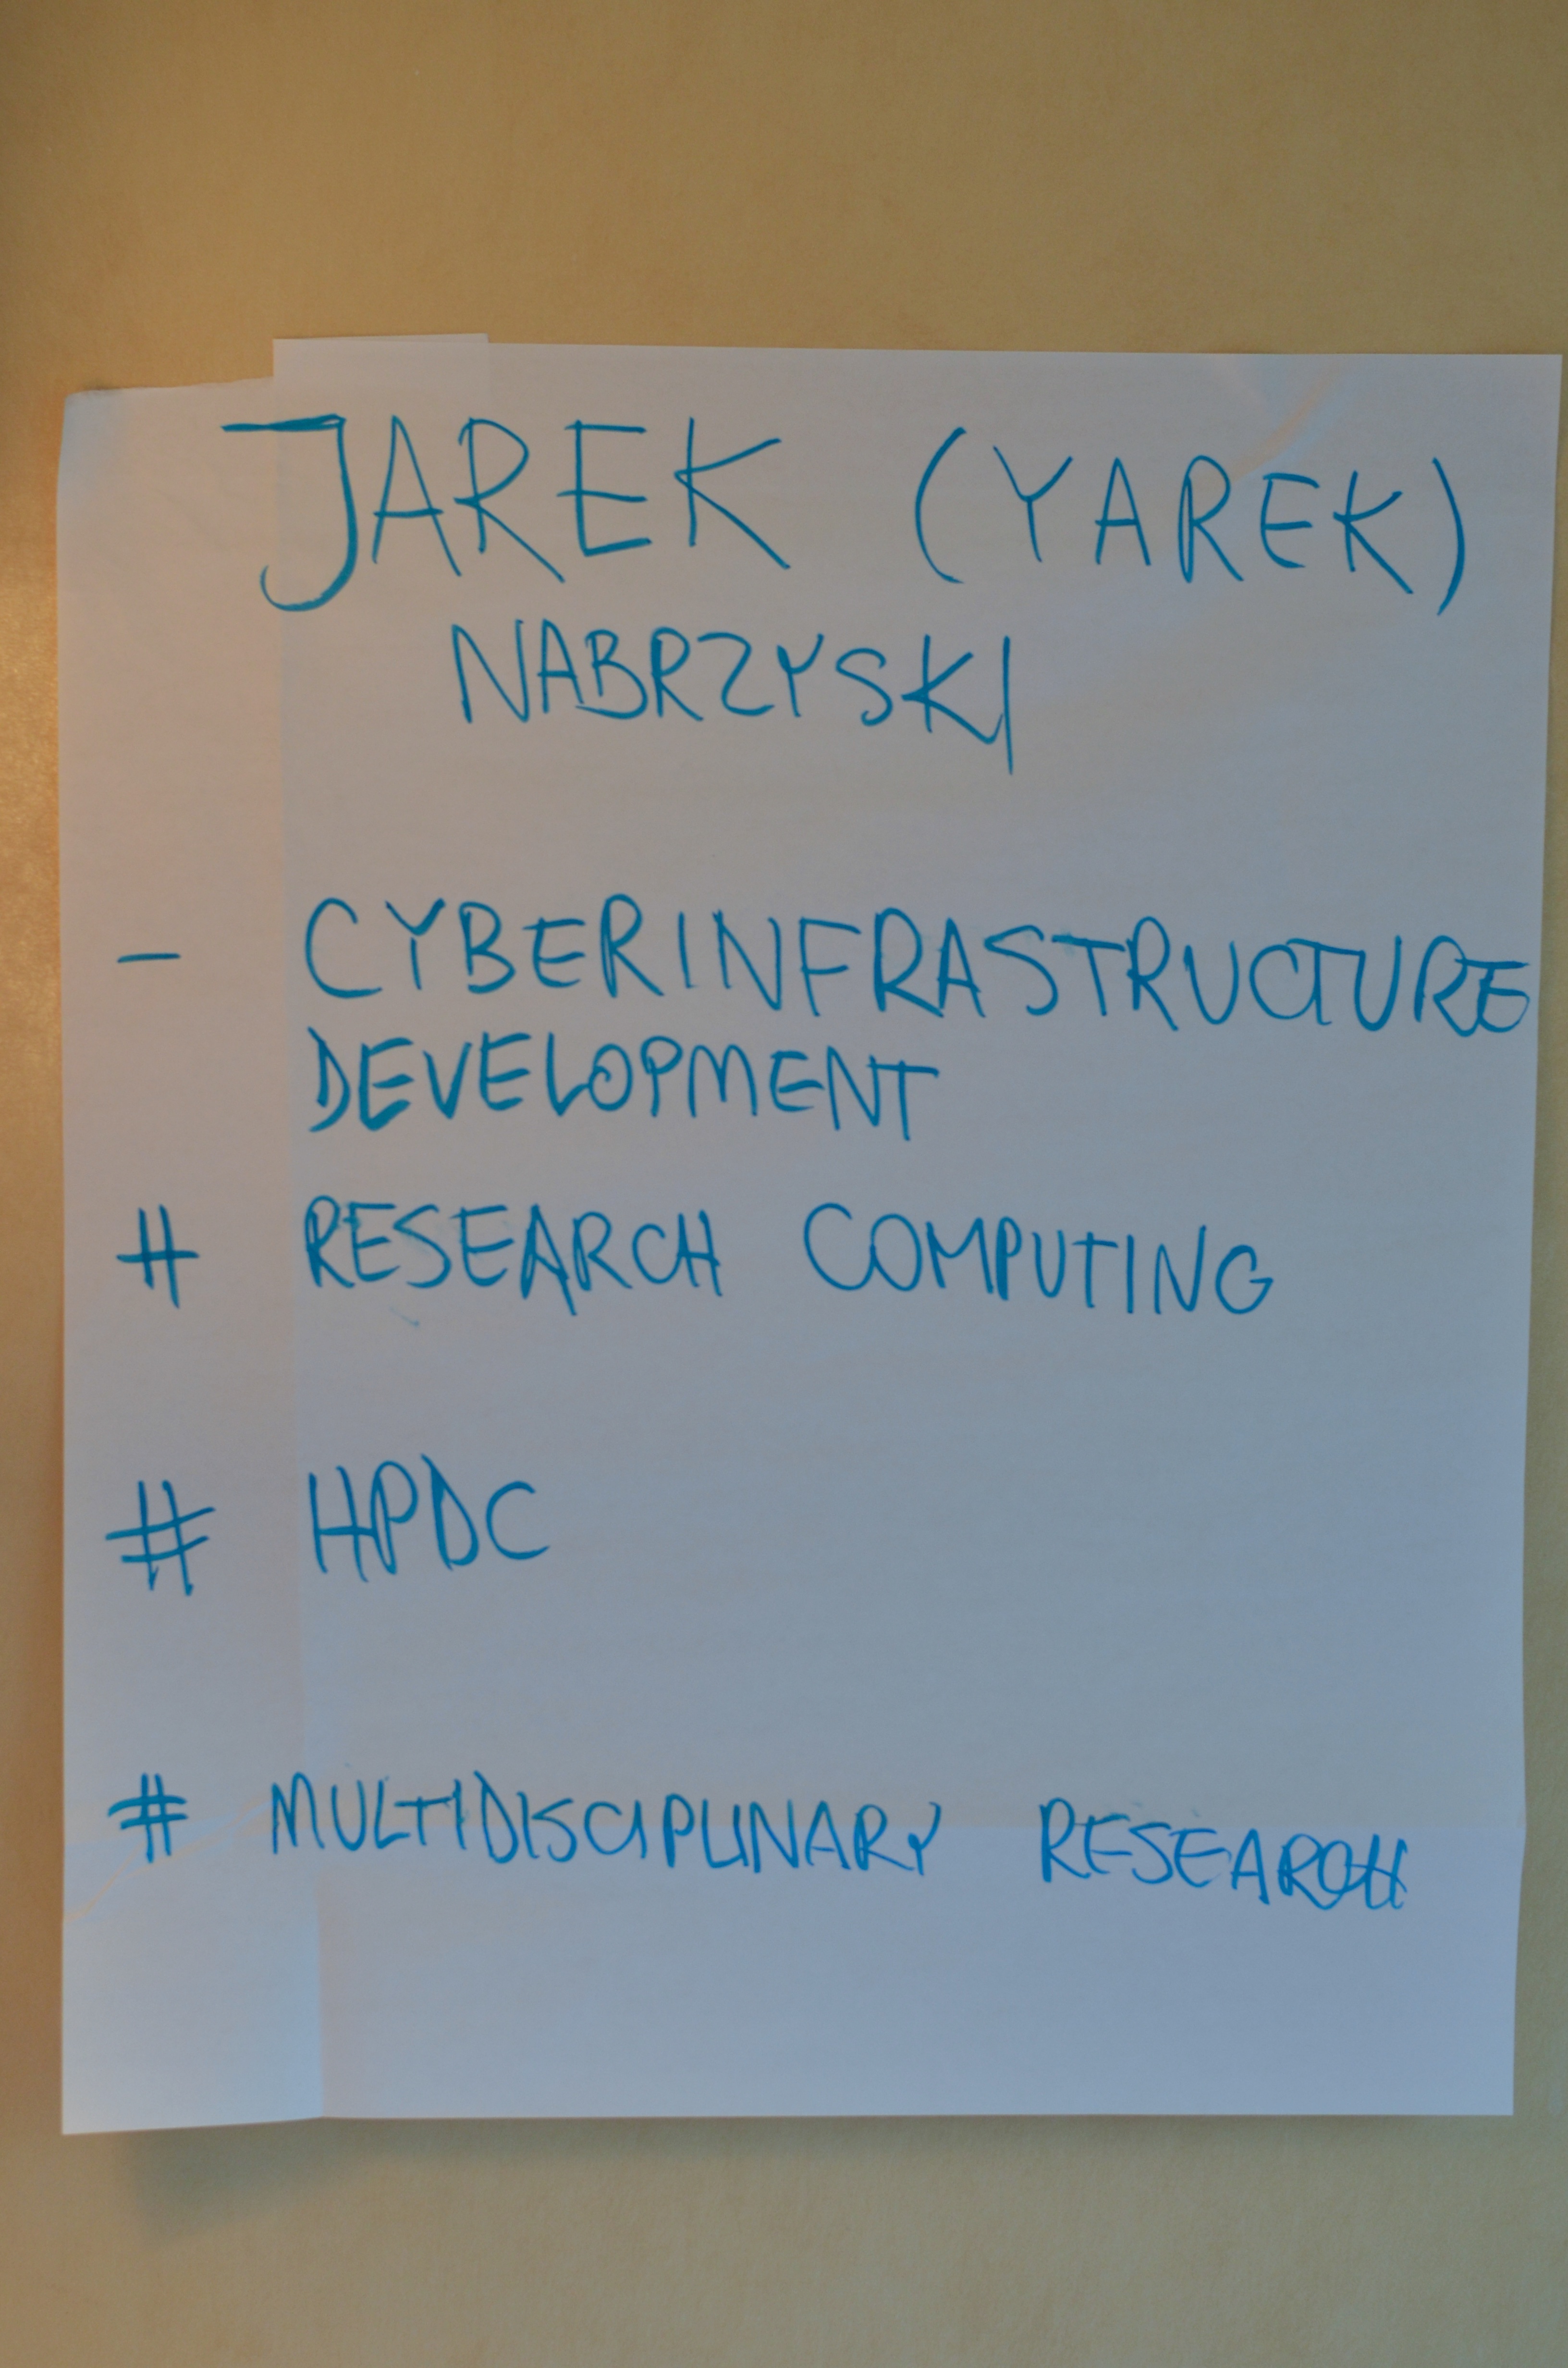 JAREK (YAREK)
NABRZYSKI
- CYBERINFRASTRUCTURE
DEVELOPMENT
# RESEARCH COMPUTING
# HPDC
# MULTIDISCIPLINARY RESEARCH